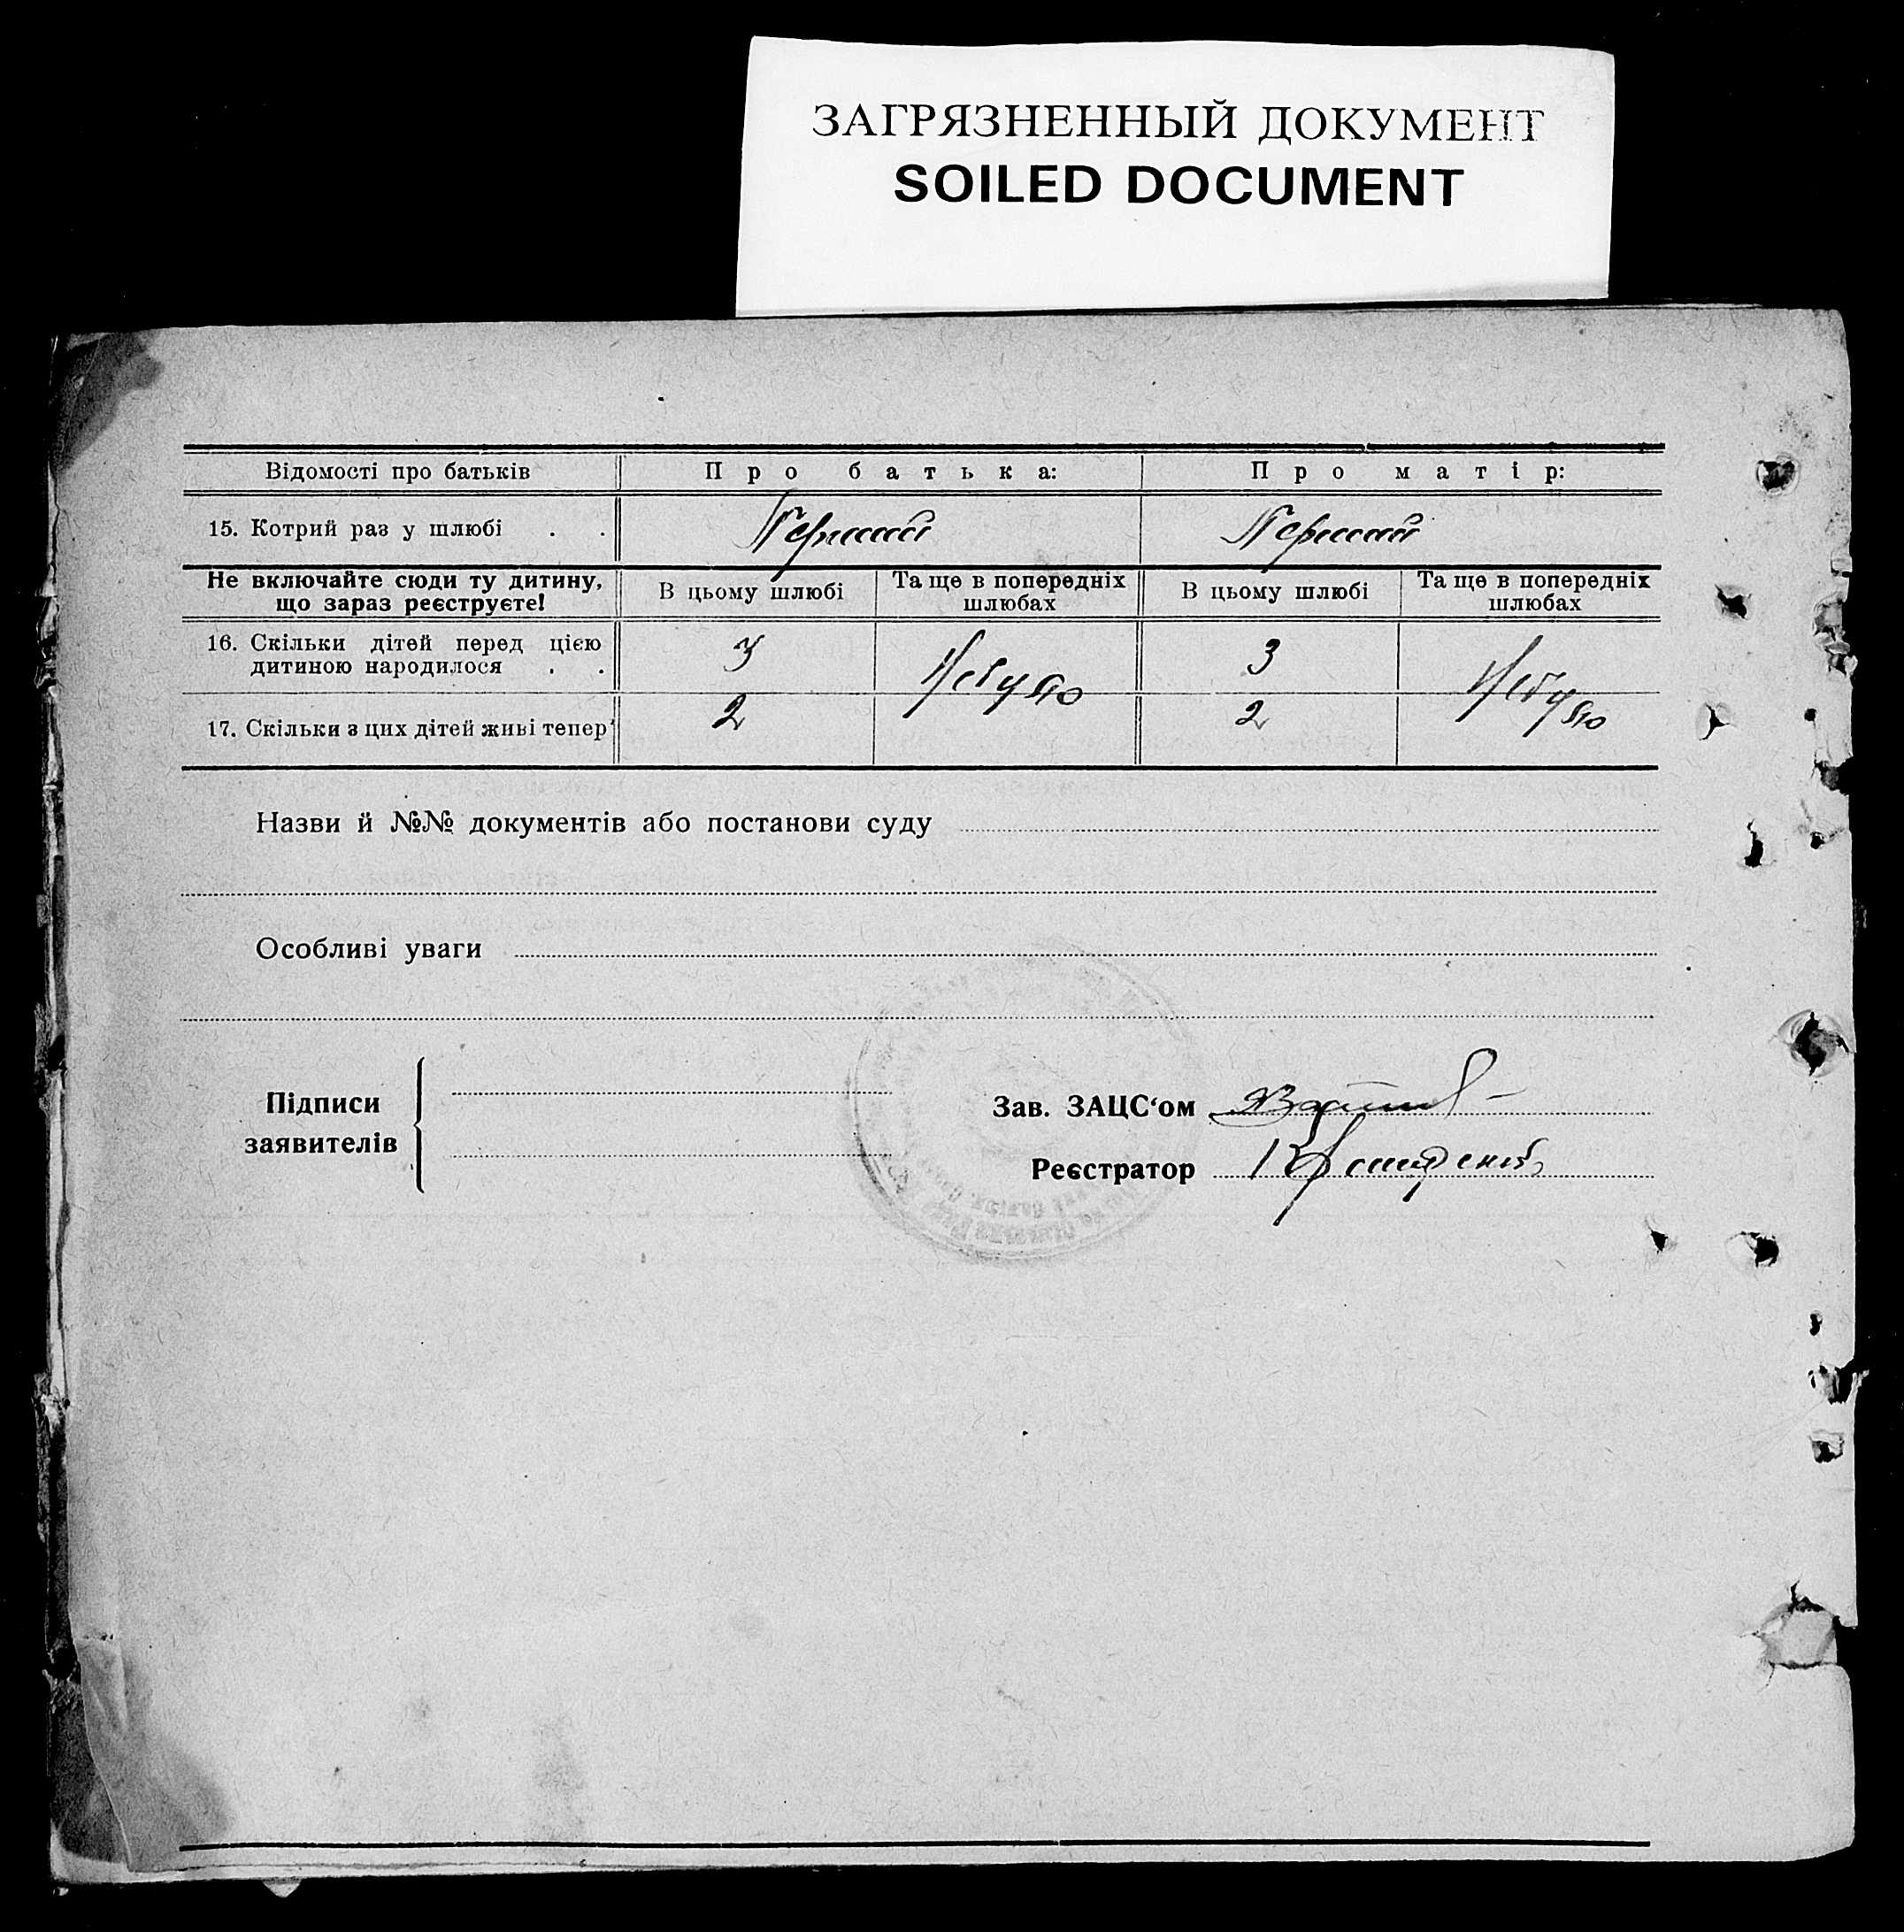 ЗАГРЯЗНЕННЫЙ ДОКУМЕНТ
SOILED DOCUMENT
Відомості про батьків Про батька: Про матір:
15. Котрий раз у шлюбі . . Перший Перший
Не включайте сюди ту дитину, що зараз реєструєте! В цьому шлюбі Та ще в попередніх шлюбах В цьому шлюбі Та ще в попередніх шлюбах
16. Скільки дітей перед цією дитиною народилося . . 3 Небуло 3 Небуло
17. Скільки з цих дітей живі тепер 2 2
Назви й №№ документів або постанови суду
Особливі уваги
Підписи заявителів
Зав. ЗАЦС‘ом
Реєстратор